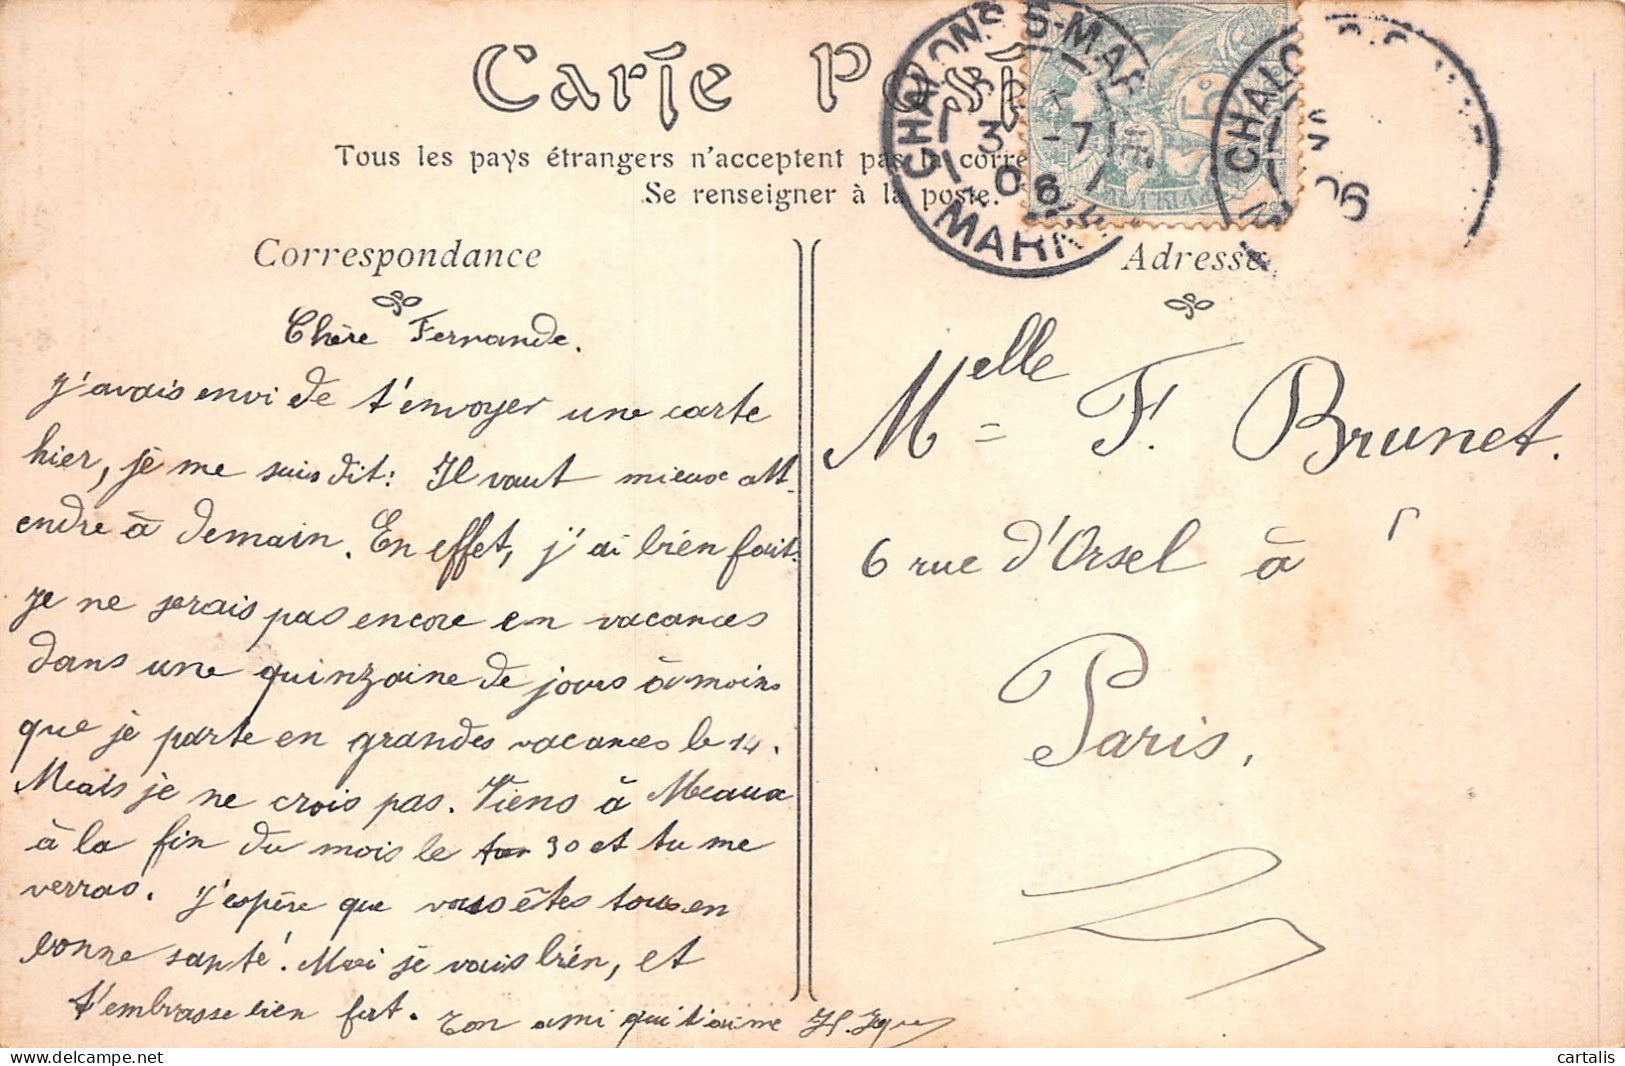 Carte Pos
Tous les pays étrangers n'acceptent pas la corre
Se renseigner à la poste.
CHALONS-S-MAR
3 -7
06
MARNE
CHALO
06
Correspondance
Adresse
Chère Fernande.
J'avais envi de t'envoyer une carte
hier, je me suis dit: Il vaut mieux att-
endre à demain. En effet, j'ai bien fait.
je ne serais pas encore en vacances
dans une quinzaine de jours à moins
que je parte en grandes vacances le 14.
Mais je ne crois pas. Viens à Meaux
à la fin du mois le 30 et tu me
verras. J'espère que vous êtes tous en
bonne santé. Moi je vais bien, et
t'embrasse bien fort. Ton ami qui t'aime H.
Melle F. Brunet.
6 rue d'Orsel à
Paris.
cartalis